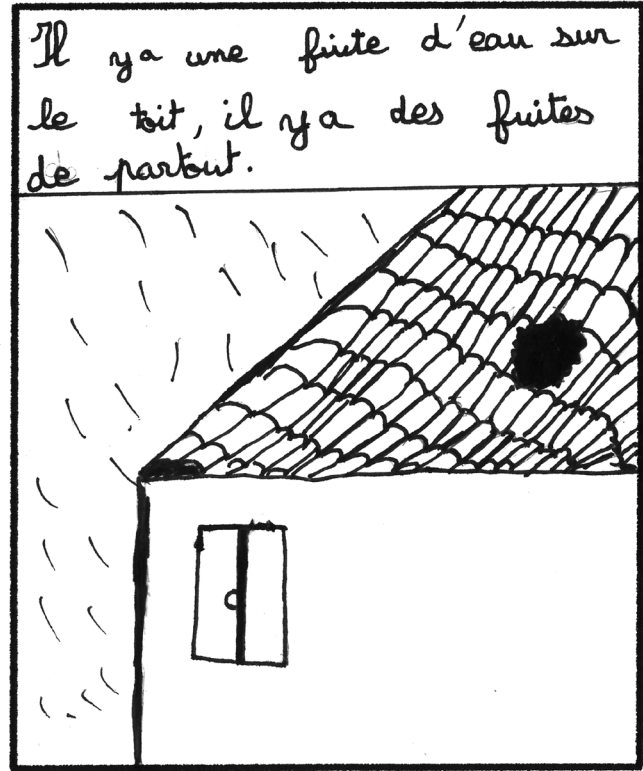 Il ya une fuite d'eau sur
le toit, il ya des fuites
de partout.